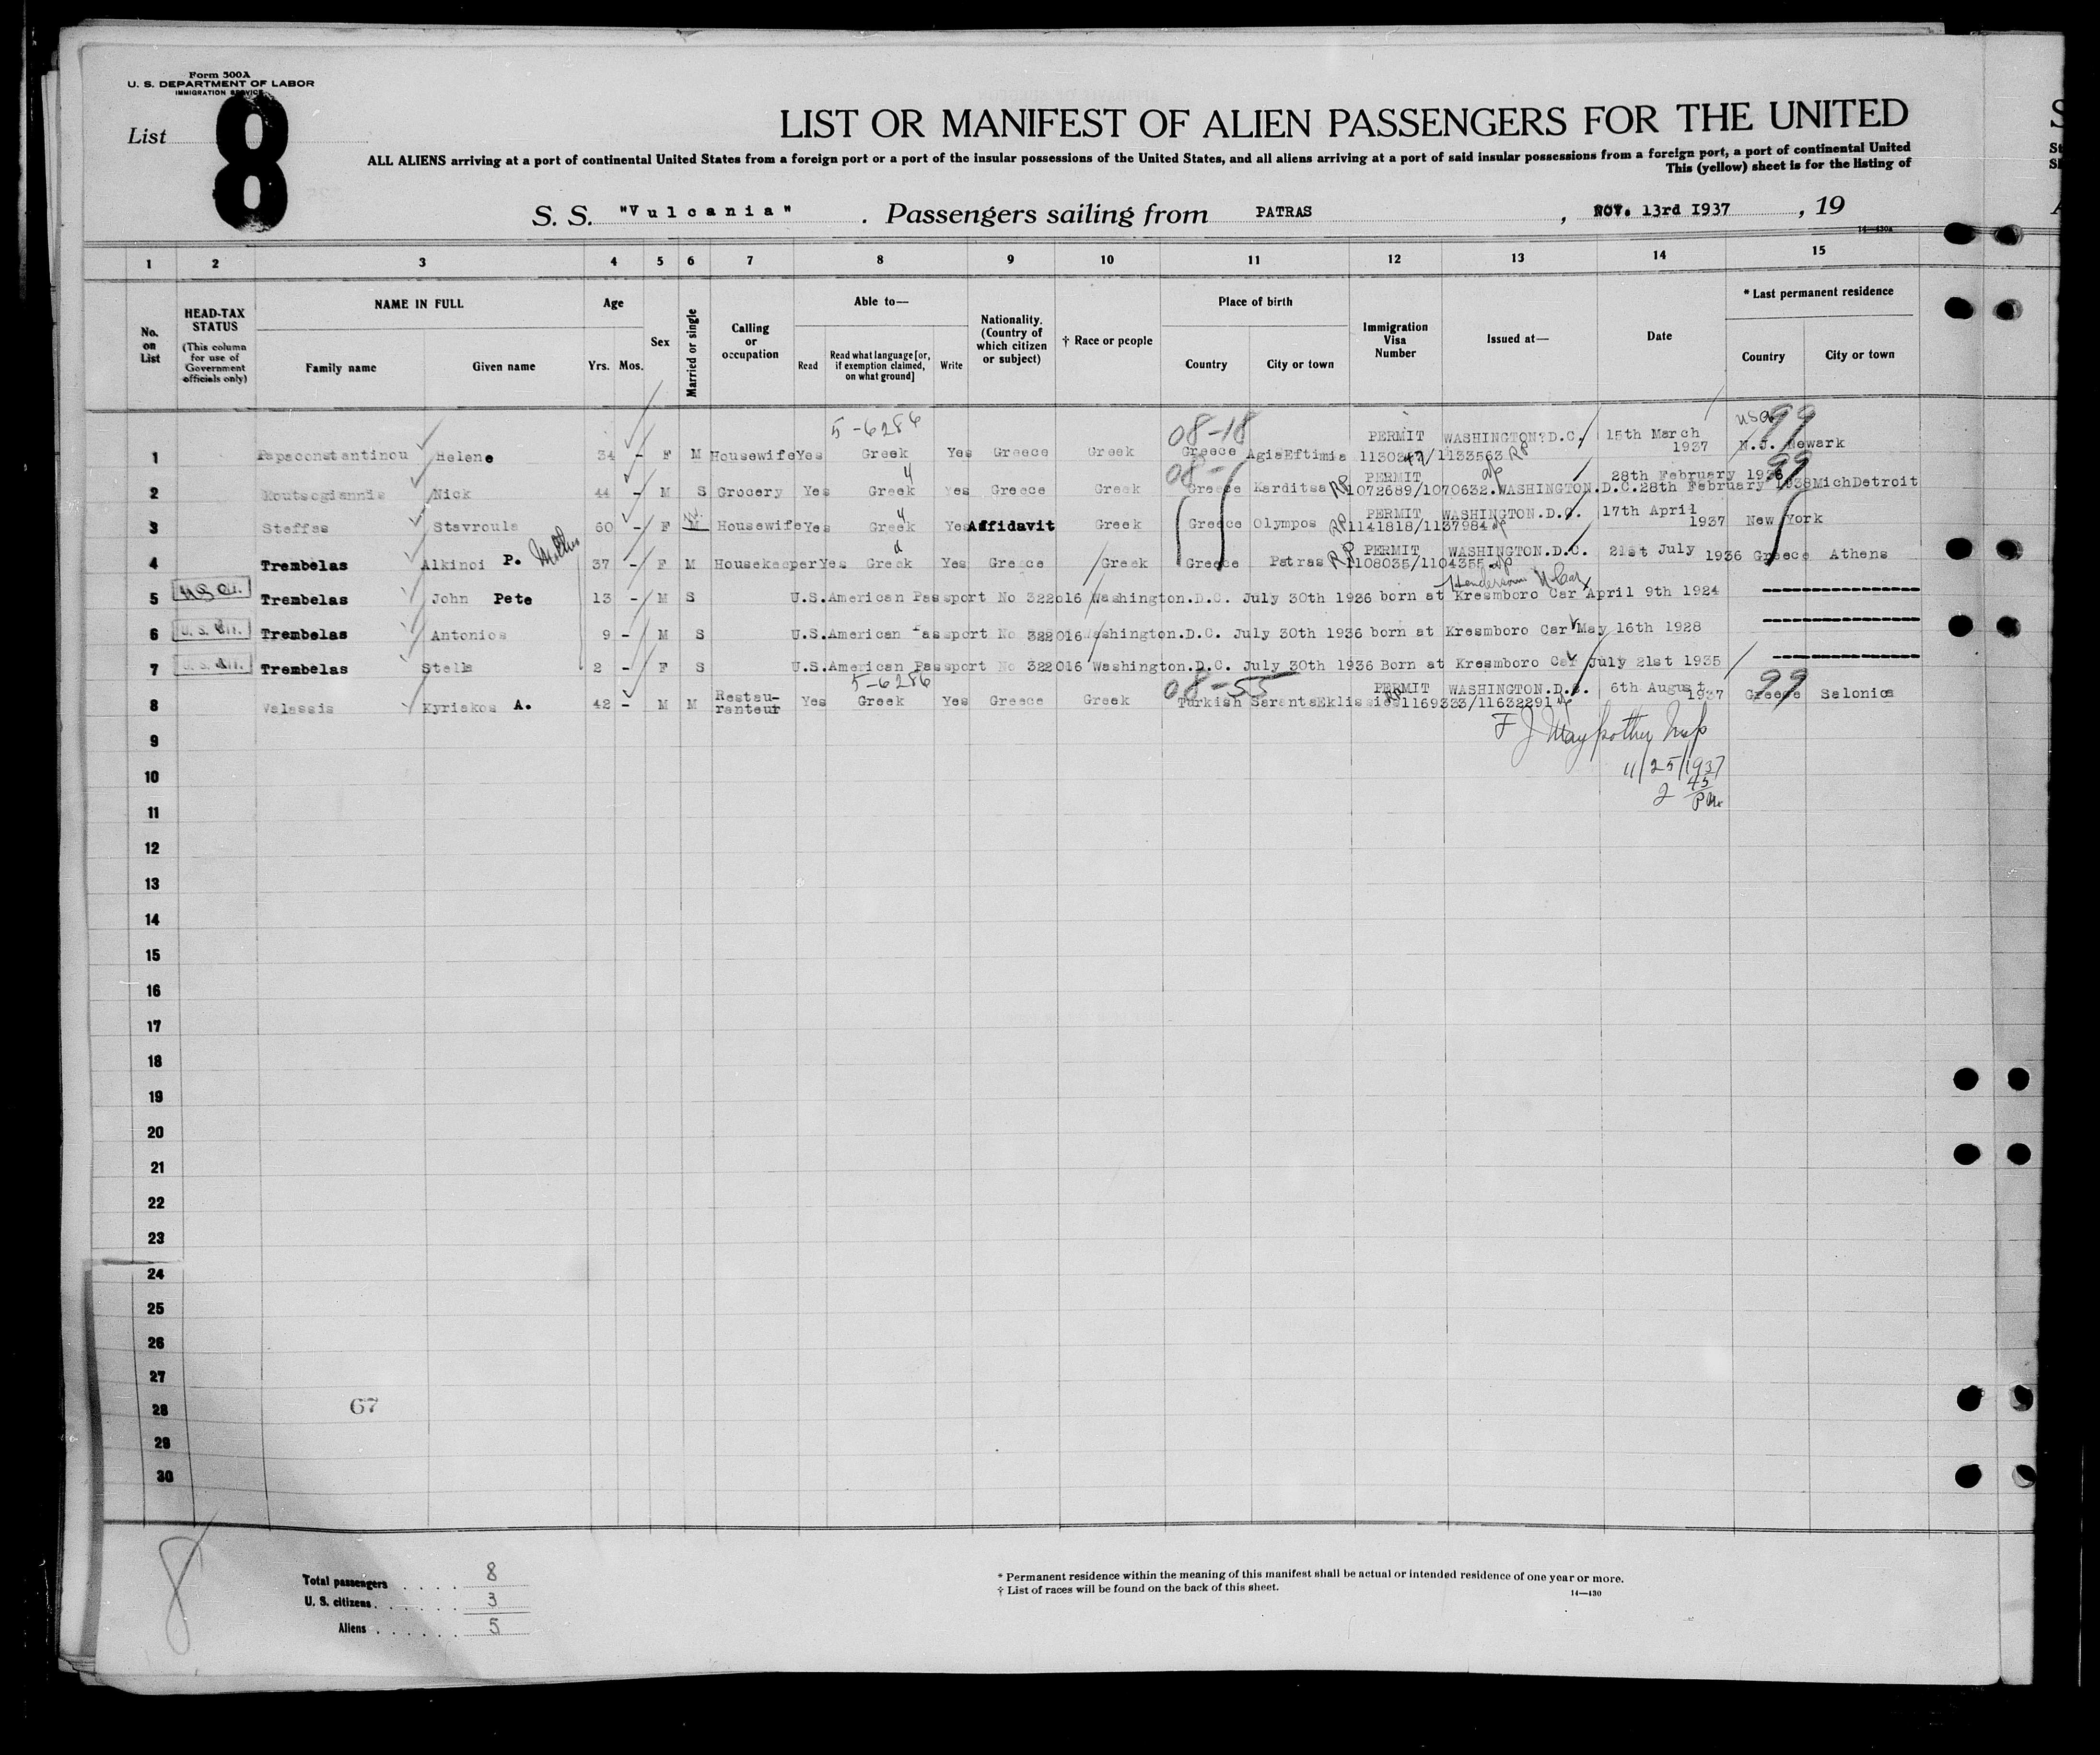 Form 500A
U. S. DEPARTMENT OF LABOR
IMMIGRATION SERVICE
List 8
LIST OR MANIFEST OF ALIEN PASSENGERS FOR THE UNITED
ALL ALIENS arriving at a port of continental United States from a foreign port or a port of the insular possessions of the United States, and all aliens arriving at a port of said insular possessions from a foreign port, a port of continental United
This (yellow) sheet is for the listing of
S. S. "Vulcania" . Passengers sailing from PATRAS , NOV. 13rd 1937 , 19
14—430A
1 2 3 4 5 6 7 8 9 10 11 12 13 14 15
No. on List
HEAD-TAX STATUS (This column for use of Government officials only)
NAME IN FULL
Family name Given name
Age
Yrs. Mos.
Sex
Married or single
Calling or occupation
Able to—
Read Read what language [or, if exemption claimed, on what ground] Write
Nationality. (Country of which citizen or subject)
† Race or people
Place of birth
Country City or town
Immigration Visa Number
Issued at—
Date
* Last permanent residence
Country City or town
5-6286 08-18 PERMIT WASHINGTON?D.C. 15th March USA 99
1 Papaconstantinou Helene 34 - F M Housewife Yes Greek Yes Greece Greek Greece AgiaEftimia 1130347/1133563 RP 1937 N.J. Newark
08- PERMIT 28th February 1936 99
2 Koutsogiannis Nick 44 - M S Grocery Yes Greek Yes Greece Greek Greece Karditsa RP 1072689/1070632.WASHINGTON.D.C.28th February 1938 Mich Detroit
PERMIT WASHINGTON.D.C. 17th April
3 Steffas Stavroula 60 - F M Housewife Yes Greek Yes Affidavit Greek Greece Olympos RP 1141818/1137984 1937 New York
PERMIT WASHINGTON.D.C. 21st July
4 Trembelas Alkinoi P. Mother 37 - F M Housekeeper Yes Greek Yes Greece Greek Greece Patras RP 1108035/1104355 1936 Greece Athens
Henderson N Car
5 US Cit. Trembelas John Pete 13 - M S U.S.American Passport No 322016 Washington.D.C. July 30th 1936 born at Kresmboro Car April 9th 1924
6 U. S. Cit. Trembelas Antonios 9 - M S U.S.American Passport No 322016 Washington.D.C. July 30th 1936 born at Kresmboro Car May 16th 1928
7 U. S. Cit. Trembelas Stella 2 - F S U.S.American Passport No 322016 Washington.D.C. July 30th 1936 Born at Kresmboro Car July 21st 1935
5-6286 08-55 PERMIT WASHINGTON.D.C. 6th August 99
8 Valassis Kyriakos A. 42 - M M Restau-ranteur Yes Greek Yes Greece Greek Turkish SarantaEklissies 1169333/11632291 1937 Greece Salonica
9
10
11/25/1937
2 45 PM
11
12
13
14
15
16
17
18
19
20
21
22
23
24
25
26
27
28 67
29
30
8
Total passengers . . . . 8
U. S. citizens . . . . . . 3
Aliens . . . . . . 5
* Permanent residence within the meaning of this manifest shall be actual or intended residence of one year or more.
† List of races will be found on the back of this sheet.
14—430